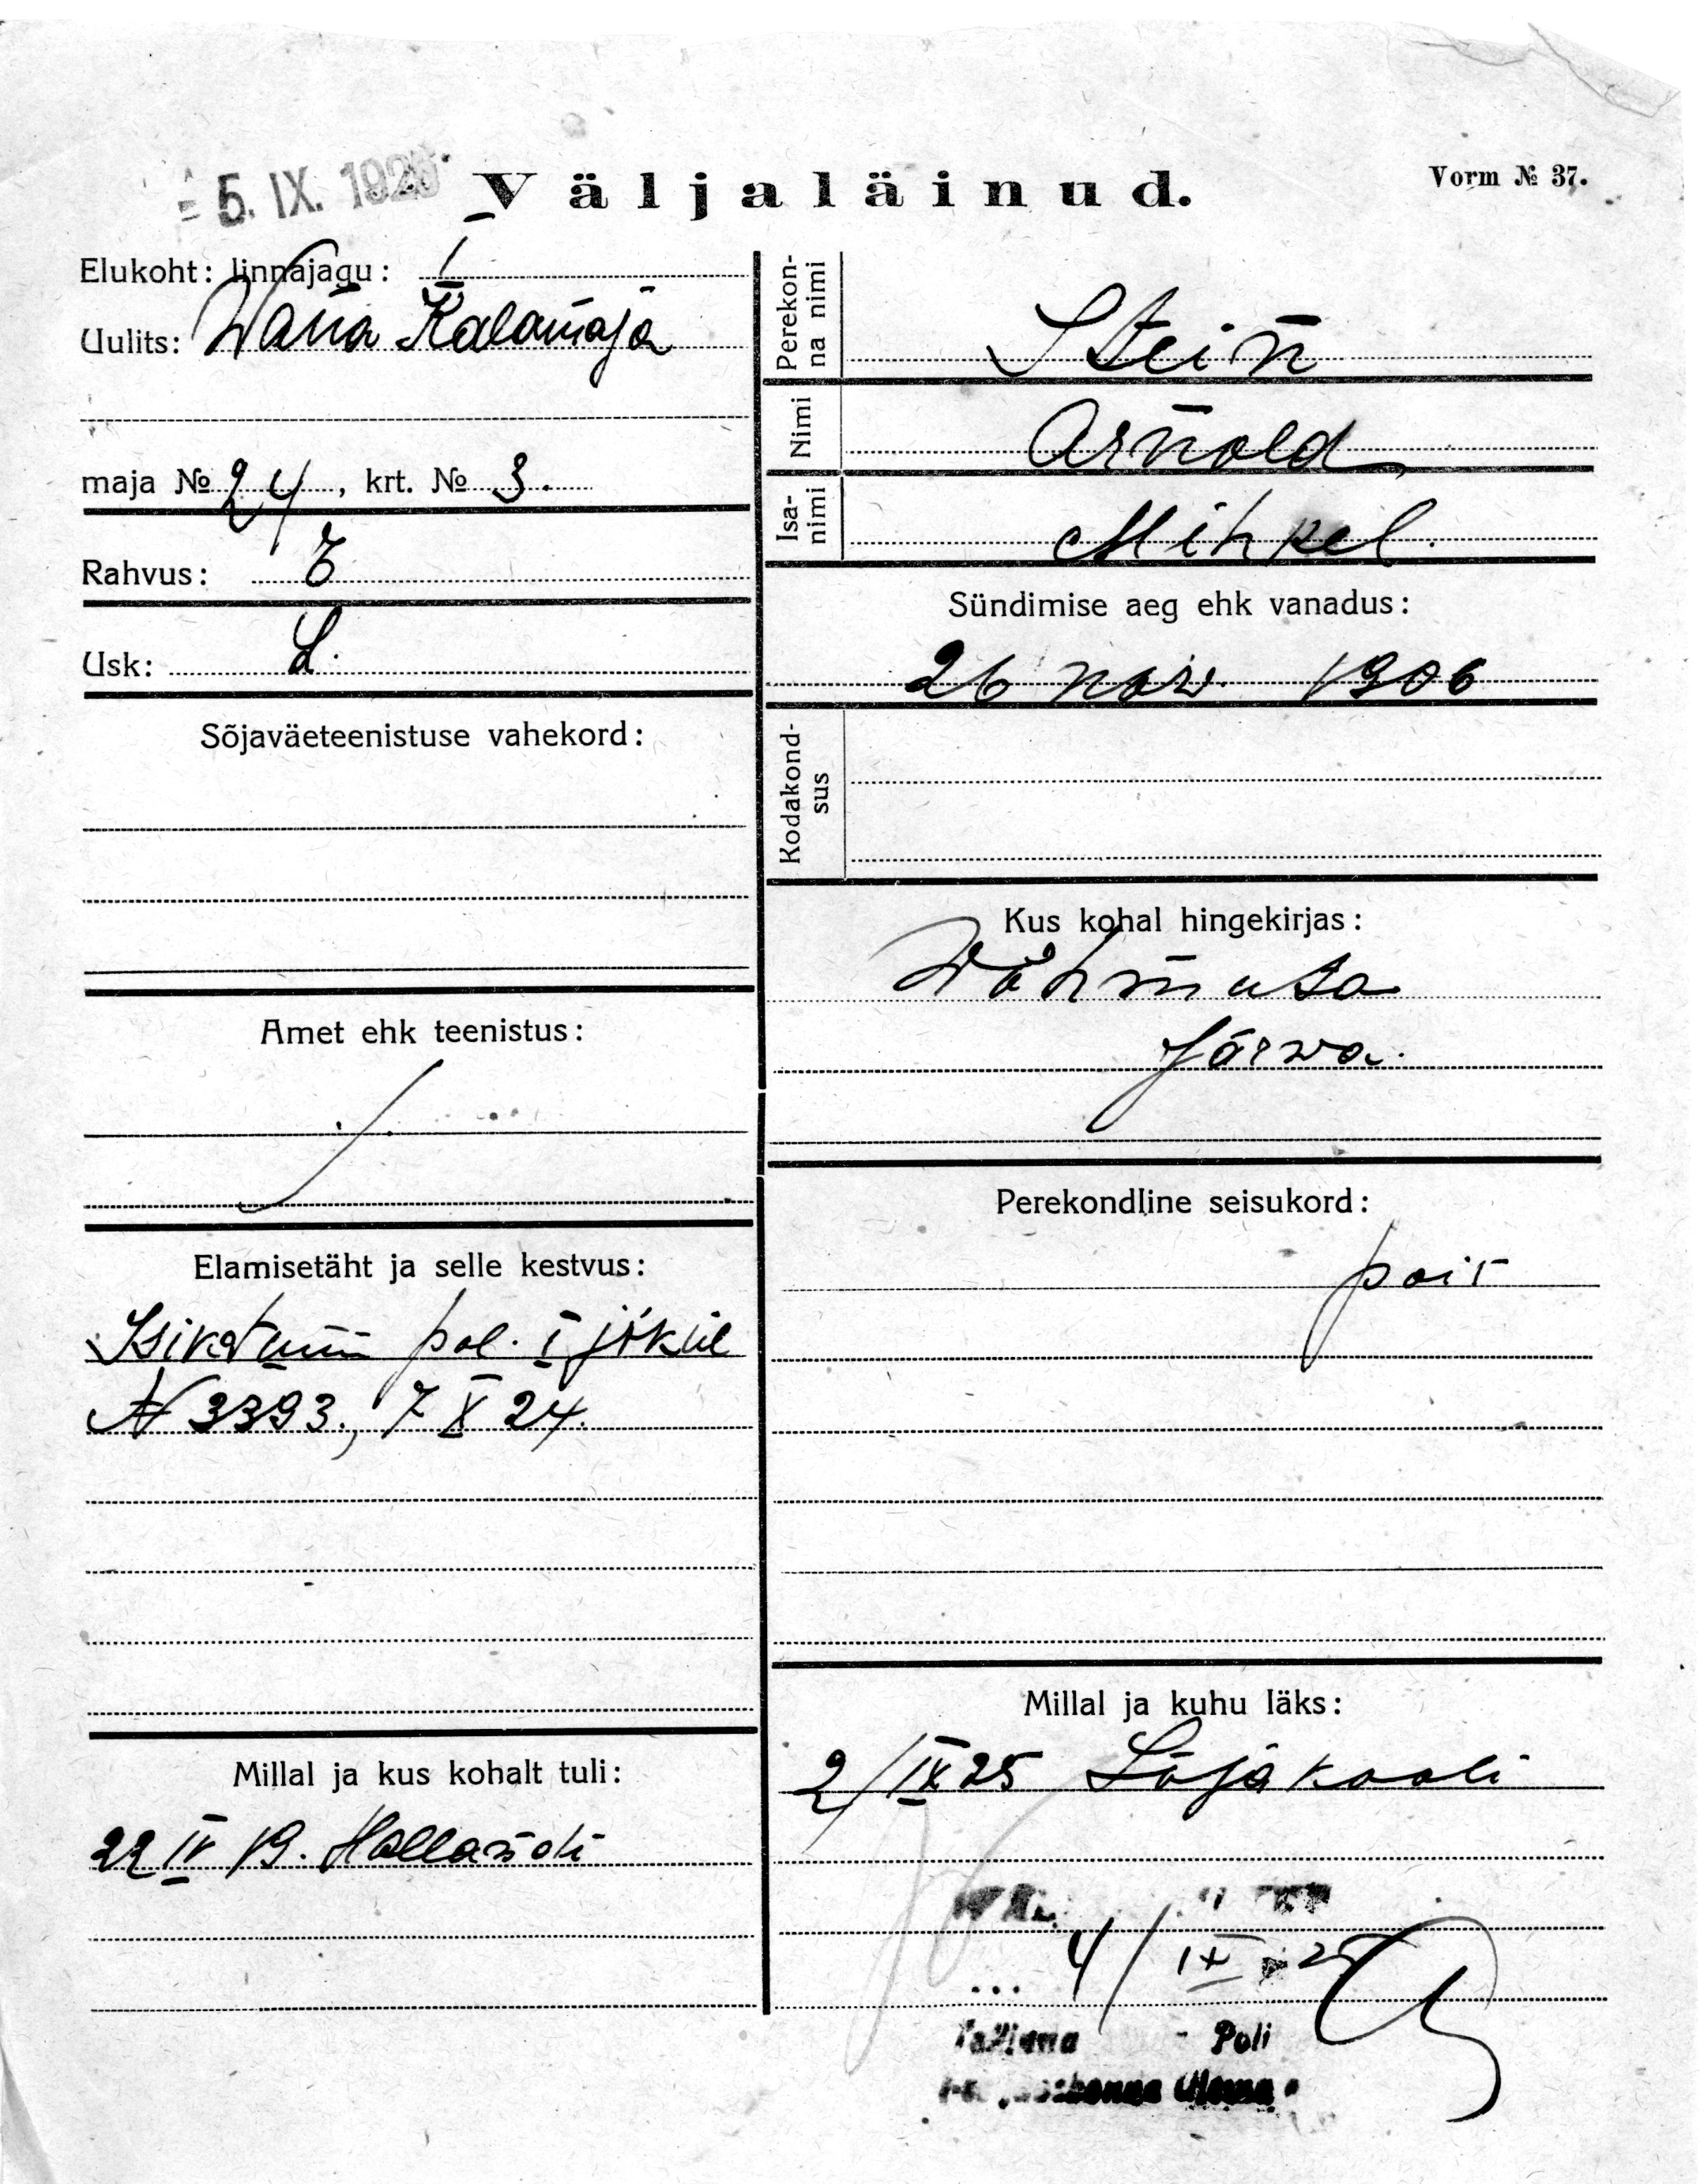 5. IX. 1925
Väljaläinud.
Vorm № 37.
Elukoht: linnajagu: I
Uulits: Wana Kalamaja
maja № 24, krt. № 3.
Rahvus: E
Usk: L.
Sõjaväeteenistuse vahekord:
Amet ehk teenistus:
Elamisetäht ja selle kestvus:
Isikotunn pol. I jsk.ül
N 3393., 7 X 24.
Millal ja kus kohalt tuli:
22 IV 19. Hollandi
Perekonna nimi
Stein
Nimi
Arnold
Isanimi
Mihkel.
Sündimise aeg ehk vanadus:
26 now. 1906
Kodakondsus
Kus kohal hingekirjas:
Wõhmuta
Järwa.
Perekondline seisukord:
pois
Millal ja kuhu läks:
2/IX 25 Sõjakooli
4/ IX 25
Tallinna Poli
jaoskonna Ülema